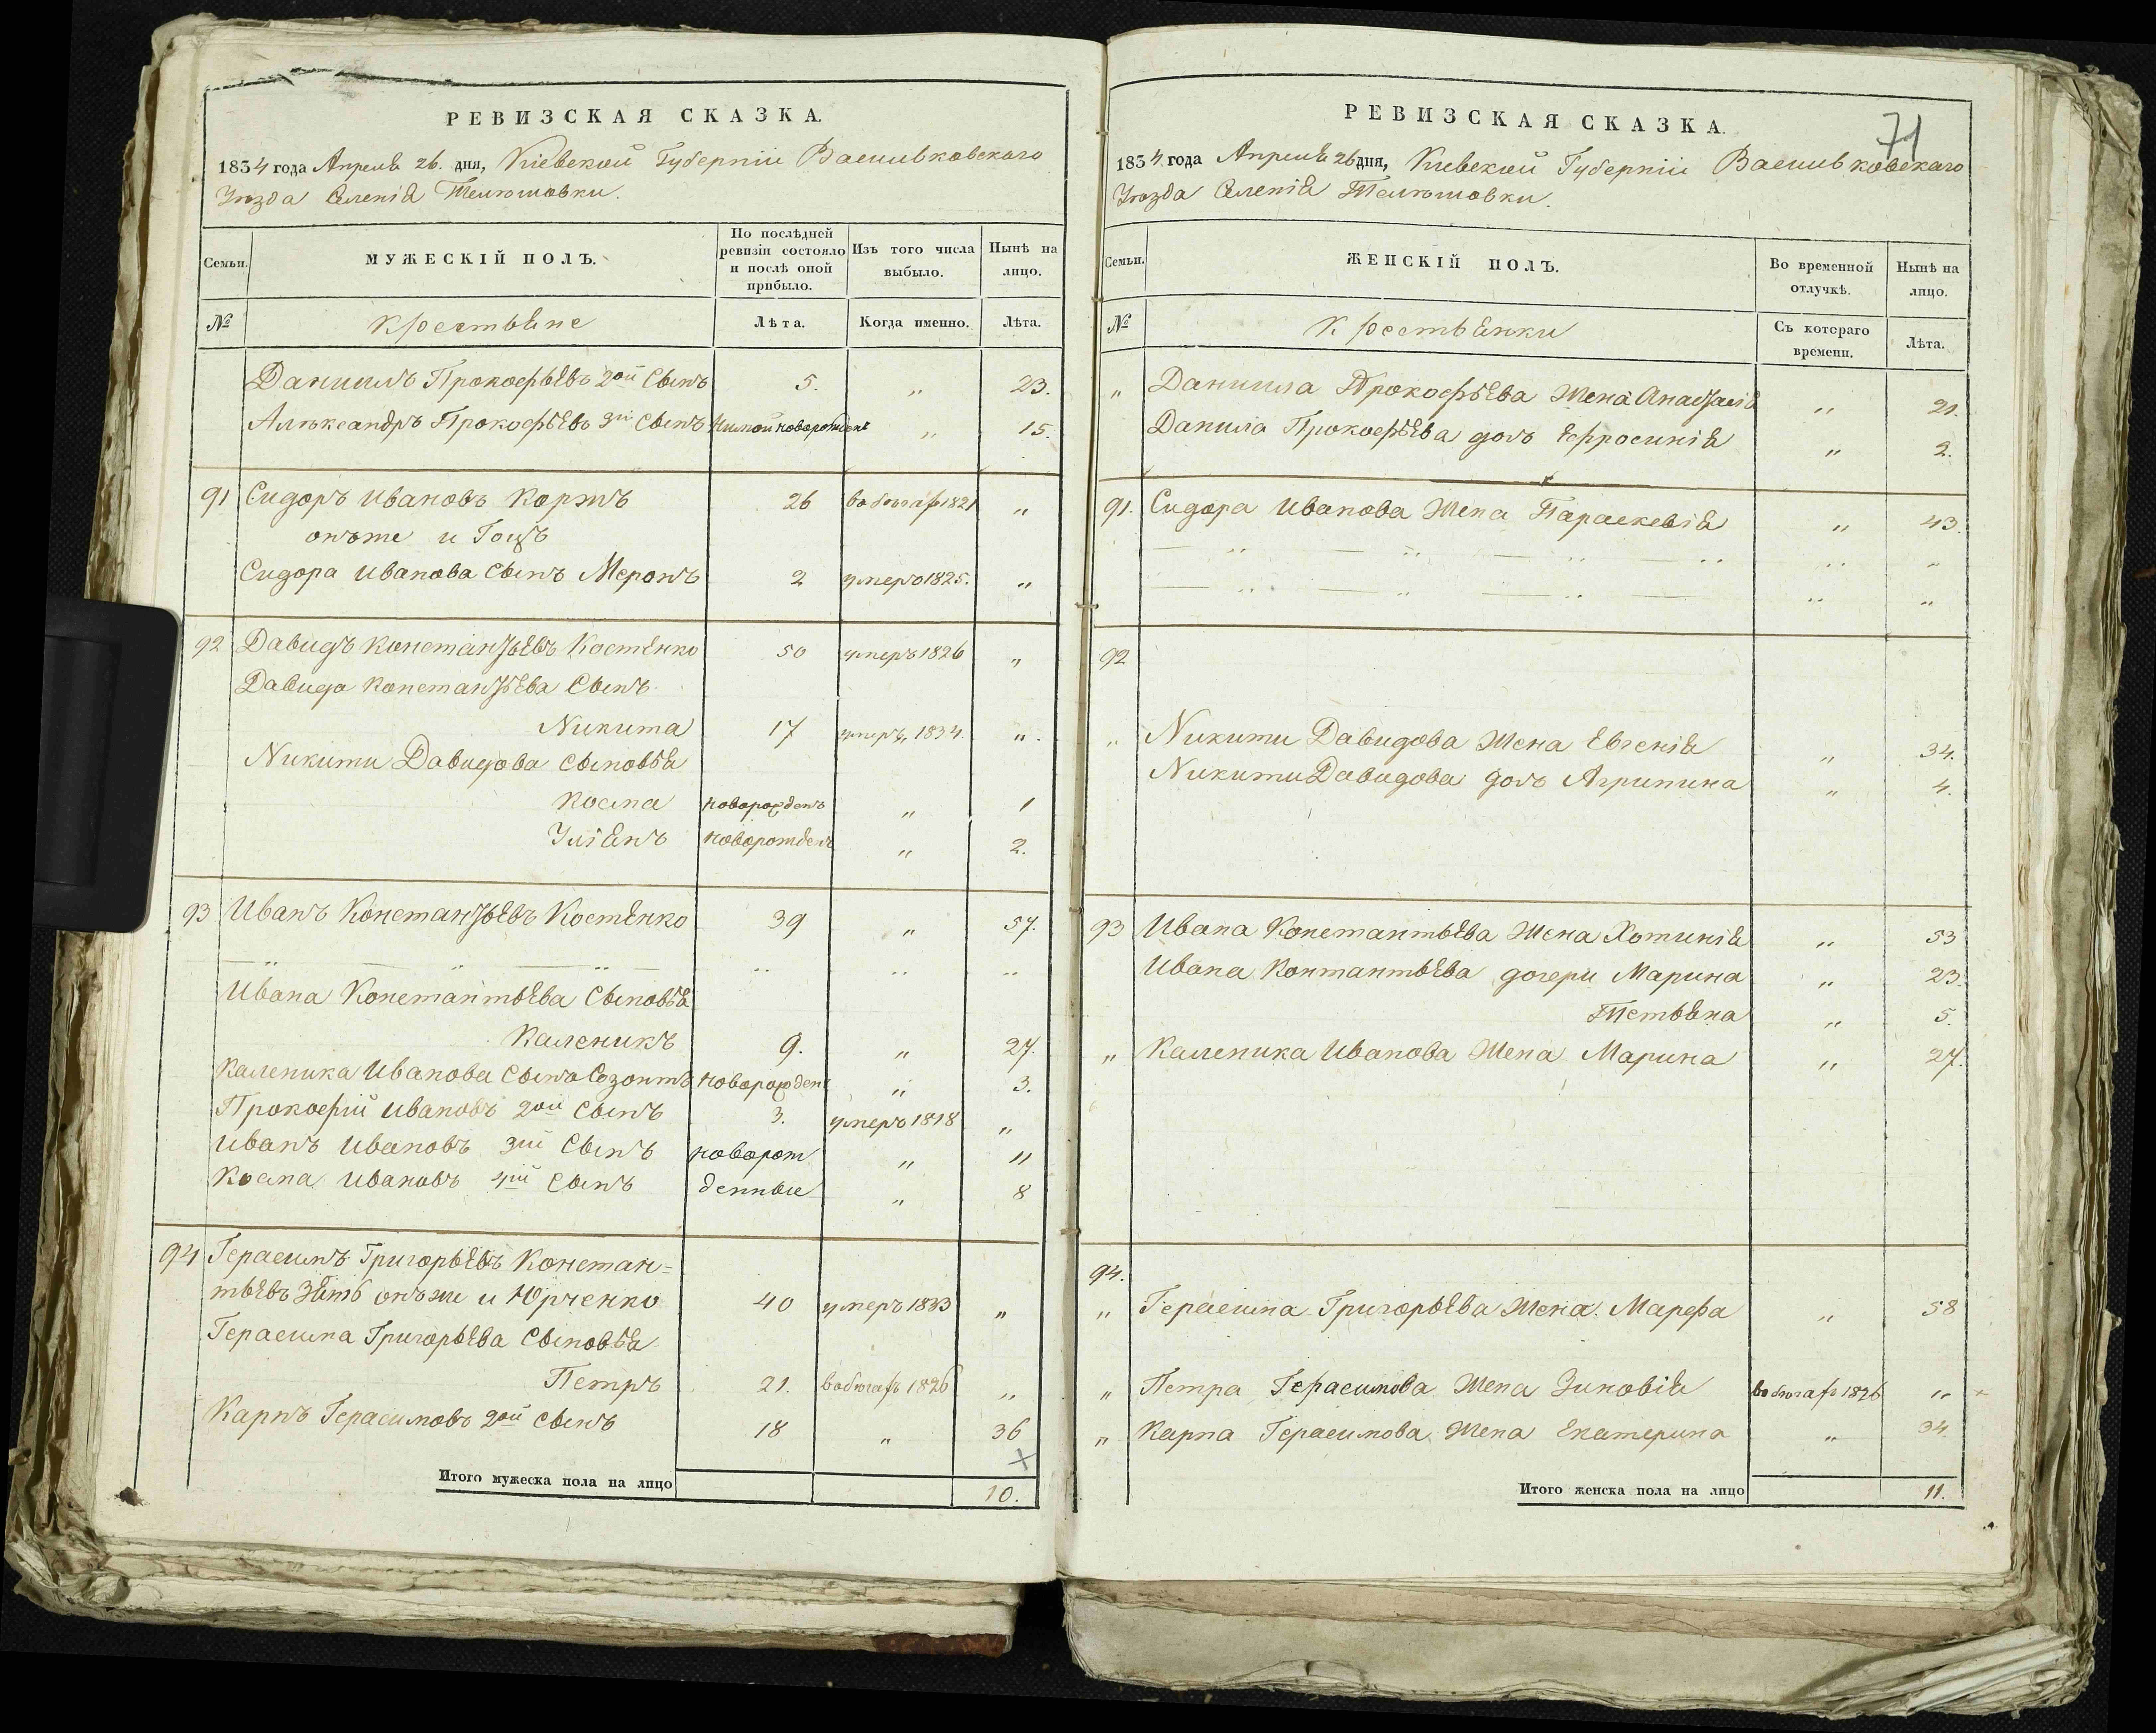 РЕВИЗСКАЯ СКАЗКА.
1834 года Апреля 26. дня, Кіевской Губерніи Васильковскаго
Уѣзда Селенія Телюшовки.
Семьи.
МУЖЕСКІЙ ПОЛЪ.
По послѣдней ревизіи состояло и послѣ оной прибыло.
Изъ того числа выбыло.
Нынѣ на лицо.
№
Крестьяне
Лѣта.
Когда именно.
Лѣта.
Даниилъ Прокофьевъ 2ой Сынъ 5. „ 23.
Алѣксандръ Прокофьевъ 3й Сынъ новорожден „ 15.
91 Сидоръ Ивановъ Коржъ 26 в бѣгаф 1821 „
онъже и
Сидора Иванова Сынъ Меронъ 2 умеръ 1825. „
92 Давидъ Константьевъ Костенко 50 умеръ 1826 „
Давида Константьева Сынъ
Никита 17 умеръ, 1834. „.
Никиты Давидова сыновья
Косма новорожденъ „ 1
Уліянъ новорожденъ „ 2.
93 Иванъ Константьевъ Костенко 39 „ 57.
Ивана Константьева Сыновья
Каленикъ 9. „ 27.
Каленика Иванова Сынъ Созонтъ новорожденъ „ 3.
Прокофій Ивановъ 2ой Сынъ 3. умеръ 1818 „
Иванъ Ивановъ 3ій Сынъ новорож „ 11
Косма Ивановъ 4ій Сынъ денные „ 8
94 Герасимъ Григорьевъ Констан=
тьевъ Зять онъ же и Юрченко 40 умеръ 1833 „
Герасима Григорьева Сыновья
Петръ 21. в бѣгахъ 1826 „
Карпъ Герасимовъ 2ой сынъ 18 „ 36
Итого мужеска пола на лицо 10.
71
РЕВИЗСКАЯ СКАЗКА.
1834 года Апреля 26 дня, Кіевской Губерніи Васильковскаго
Уѣзда Селенія Телюшовки.
Семьи.
ЖЕНСКІЙ ПОЛЪ.
Во временной отлучкѣ.
Нынѣ на лицо.
№
Крестьянки
Съ котораго времени.
Лѣта.
„ Даниила Прокофьева Жена Анастасія „ 21.
Данила Прокофьева дочь Ефросинія „ 2.
91. Сидора Иванова Жена Параскевія „ 43.
92
„ Никиты Давидова Жена Евгенія „ 34.
Никиты Давидова дочь Агрипина „ 4.
93 Ивана Константьева Жена Хотинія „ 53
Ивана Контантьева дочери Марина „ 23.
Тетьяна „ 5.
„ Каленика Иванова Жена Марина „ 27.
94.
„ Герасима Григорьева Жена Марфа „ 58
„ Петра Герасимова Жена Зиновія в бѣгахъ 1826 „
„ Карпа Герасимова Жена Екатерина „ 34.
Итого женска пола на лицо 11.